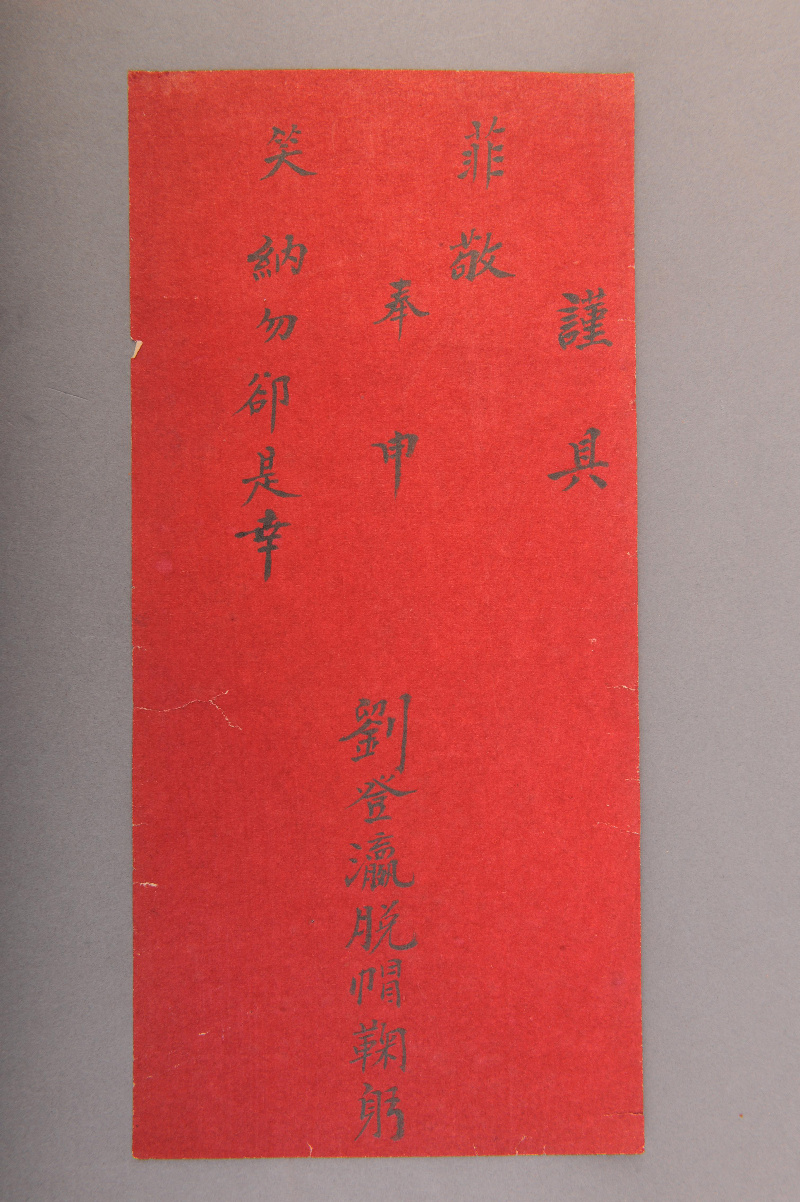 謹具
菲敬
奉申
笑納勿卻是幸
劉登瀛脫帽鞠躬